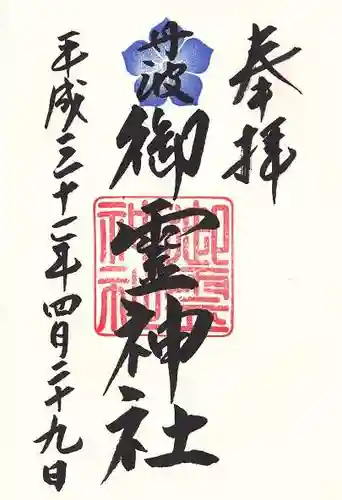 奉拝
丹波
御霊神社
平成三十一年四月二十九日